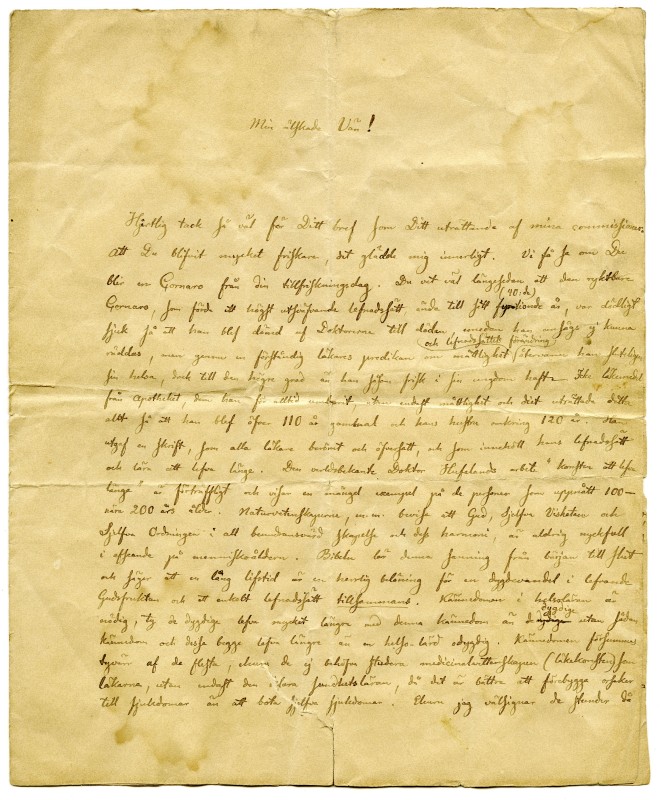 Min älskade Vän!
Hjertlig tack så väl för Ditt bref som Ditt uträttande af mina commissioner.
Att Du blifvit mycket friskare, det glädde mig innerligt. Vi få se om Du
blir en Cornaro från din tillfriskningsdag. Du vet väl längesedan att den ryktbare
(40.de)
Cornaro, som förde ett högst utsväfvande lefnadssätt ända till sitt år, var dödligt
sjuk så att han blef dömd af Doktorerne till döden, emedan han ej kunna
och lefnadssättets förändring
räddas, men genom en förståndig läkares predikan om måttlighet återvann han
sin helsa, dock till den högre grad än han förut i sin ungdom haft. Icke läkemedel
från apotheket, dem han för alltid undvek, utan endast måttlighet och diet uträttade detta
allt så att han blef öfver 110 år gammal och hans hustru omkring 120 år. Han
utgif en skrift, som alla läkare berömt och öfversatt, och som innehöll hans lefnadssätt
och lära att lefva länge. Den verldsbekante Doktor Hufelands arbete "konsten att lefva
länge" är förträffligt och visar en mängd exempel på de personer som uppnått 100–
nära 200 års ålder. Naturvetenskaperne, m.m. bevisa att Gud, sjelfva Visheten och
Sjelfva Ordningen i all beundransvärd skapelse och dess harmoni, är aldrig nyckfull
i afseende på menniskoåldern. Bibeln lär denna sanning från början till slut
och säger att en lång lifstid är en herrlig belöning för en dygdevandel i lefvande
Gudsfruktan och ett enkelt lefnadssätt tillsammans. Kännedomen i helsoläran är
dygdige
nödig, ty de dygdige lefva mycket längre med denna kännedom än de utan sådan
kännedom och dessa begge lefva längre än en helso-lärd odygdig. Kännedomen försummas
tyvärr af de flesta, ehuru de ej behöfva studera medicinalvetenskapen (läkekonsten) som
läkarna, utan endast den klara sundhetsläran, då det är bättre att förebygga orsaker
till sjukdomar än att bota sjelfva sjukdomar. Ehuru jag välsignar de stunder då